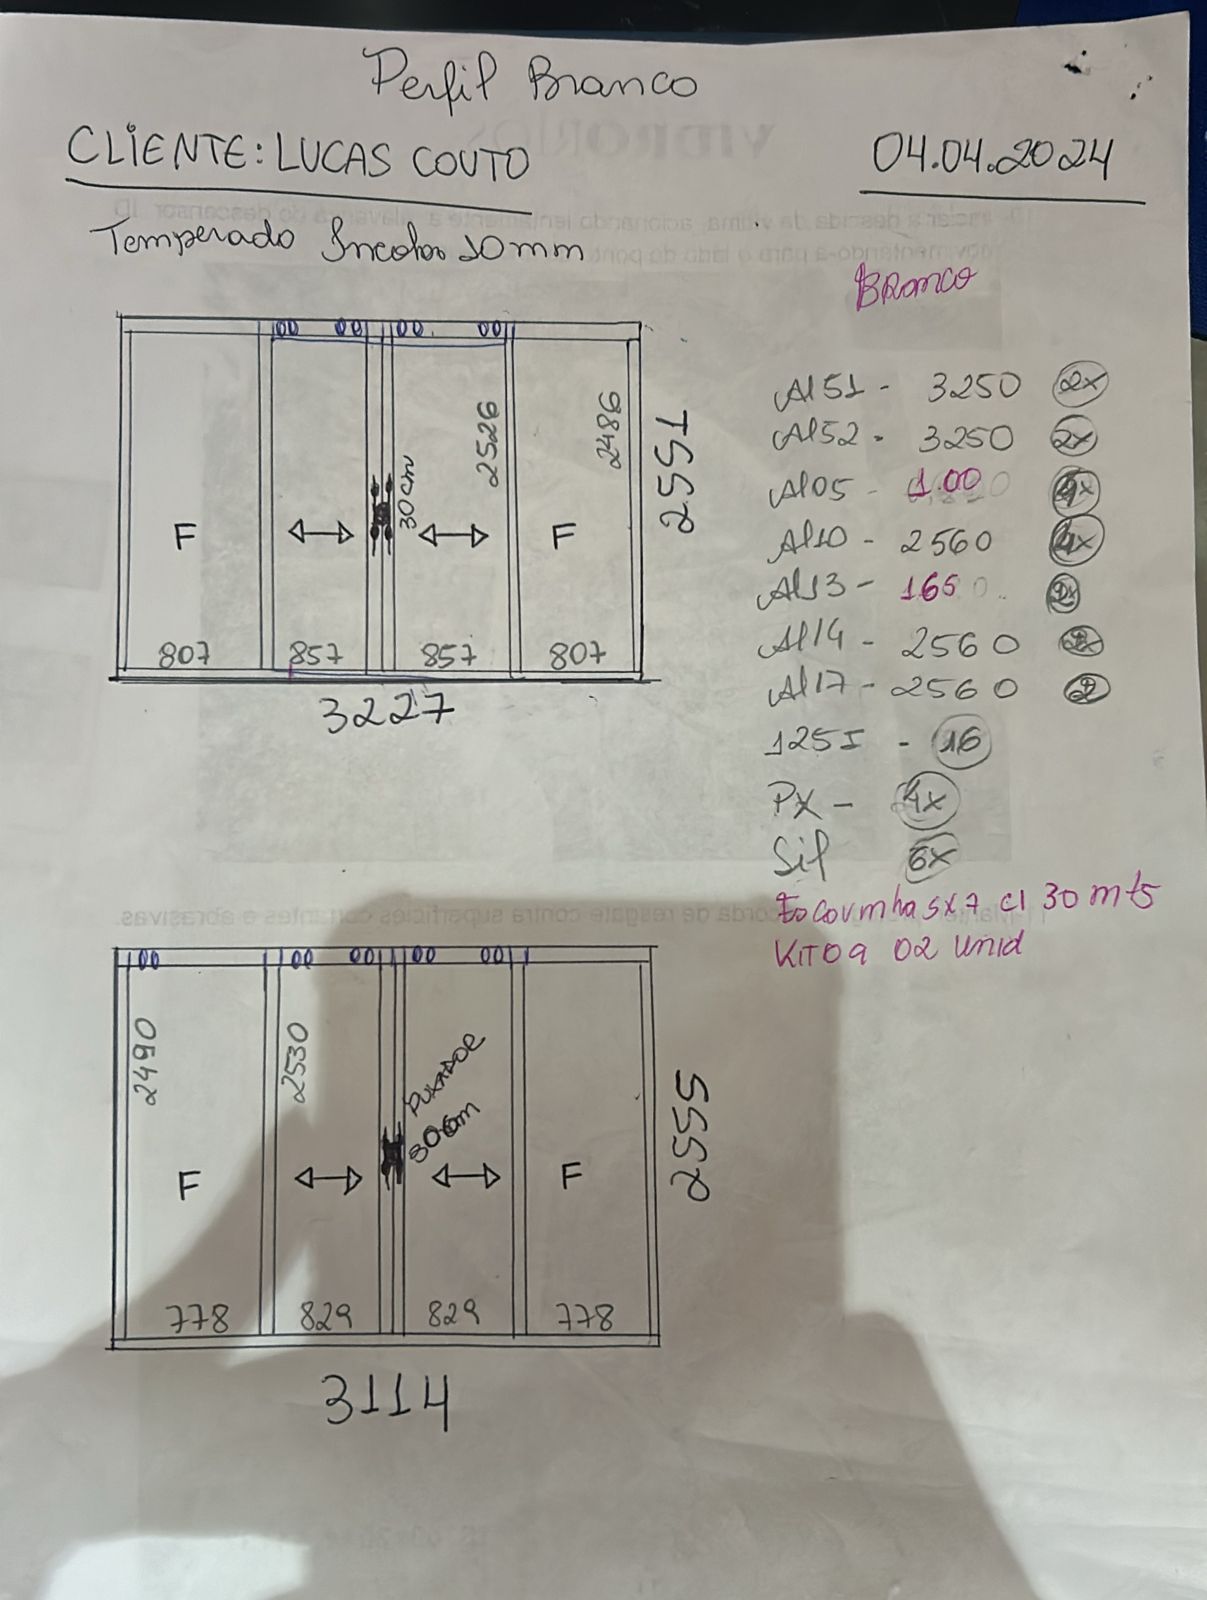 Perfil Branco
CLIENTE: LUCAS COUTO
04.04.2024
Temperado Incolor 10mm
BRANCO
F
807
857
30cm
857
2526
F
807
2486
2551
3227
Al51 - 3250 2x
Al52 - 3250 2x
Al05 - 1.00
Al10 - 2560 4x
Al13 - 165
Al14 - 2560
Al17 - 2560 2
125I - 16
PX - 4x
Sil 6x
Escovinha 5x7 c/ 30 mts
KIT 09 02 unid
2490
F
778
2530
829
PUXADOR
30cm
829
F
778
2555
3114